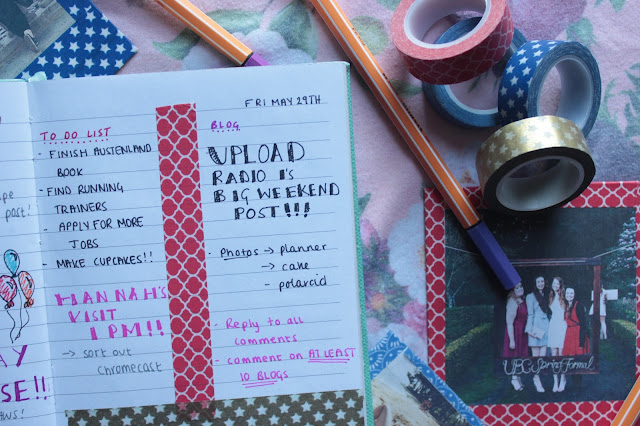 FRI MAY 29TH
TO DO LIST
- FINISH AUSTENLAND
BOOK
- FIND RUNNING
TRAINERS
- APPLY FOR MORE
JOBS
- MAKE CUPCAKES!!
HANNAH'S
VISIT
1 PM!!
→ sort out
chromecast
BLOG
UPLOAD
RADIO 1'S
BIG WEEKEND
POST!!!
- Photos → planner
→ cake
- polaroid
- Reply to all
comments
- comment on AT LEAST
10 BLOGS
post!
UPC Spring Formal